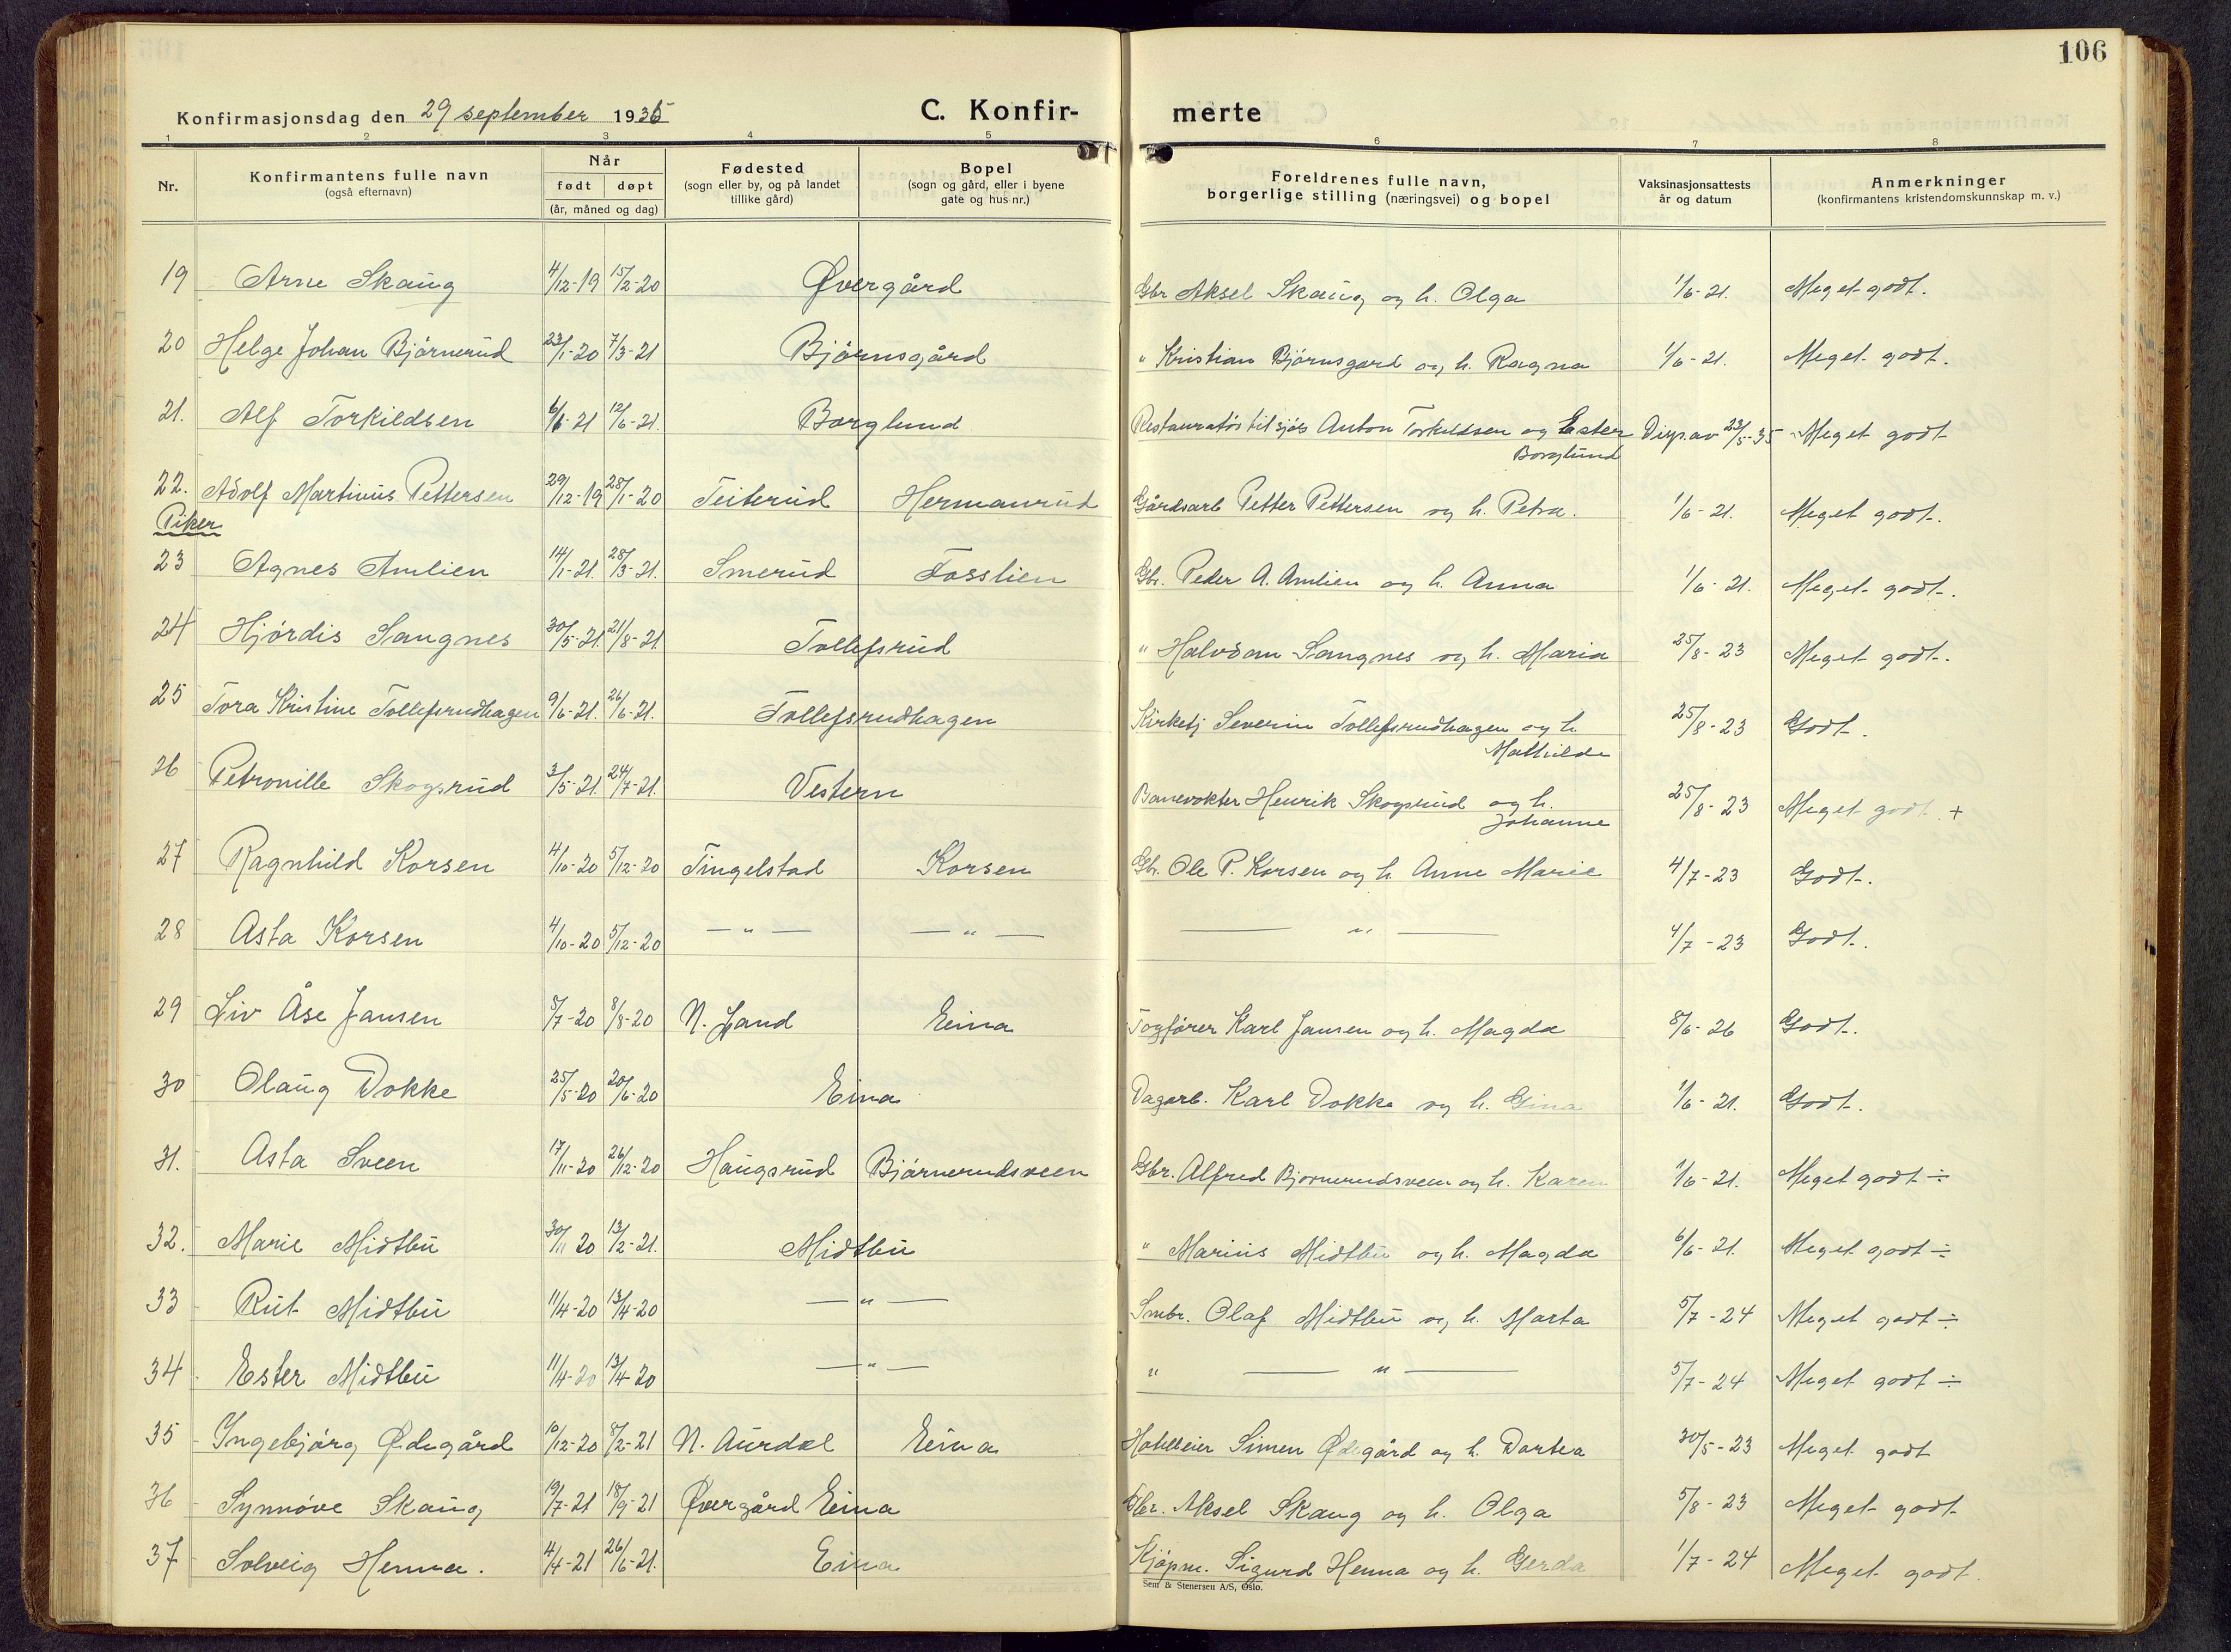 106
Konfirmasjonsdag den 29 september 1935
C. Konfir-
merte
1 2 3 4 5 6 7 8
Nr.
Konfirmantens fulle navn
(også efternavn)
Når
født døpt
(år, måned og dag)
Fødested
(sogn eller by, og på landet
tillike gård)
Bopel
(sogn og gård, eller i byene
gate og hus nr.)
Foreldrenes fulle navn,
borgerlige stilling (næringsvei) og bopel
Vaksinasjonsattests
år og datum
Anmerkninger
(konfirmantens kristendomskunnskap m. v.)
19 Arne Skaug 4/12-19 15/2-20 Øvergård Gbr Aksel Skaug og h. Olga 1/6-21. Meget godt.
20 Helge Johan Bjørnerud 23/1-20 7/3-21 Bjørnsgård " Kristian Bjørnsgard og h. Ragna 1/6-21. Meget godt.
21. Alf Torkildsen 6/1-21 12/6-21. Borglund Restauratør til sjøs Anton Torkildsen og Ester 23/5-35 Meget godt
Borglund
22. Adolf Martinus Pettersen 29/12-19 28/1-20 Teiterud Hermanrud Gårdsarb Petter Pettersen og h. Petra. 1/6-21. Meget godt.
Piker
23 Agnes Amlien 14/1-21. 28/3-21. Smerud Fosslien Gbr. Peder A. Amlien og h. Anna 1/6-21. Meget godt.
24 Hjørdis Sangnes 30/5-21. 21/8-21 Tollefsrud " Halvdan Sangnes og h. Maria 25/8-23 Meget godt.
25 Tora Kristine Tollefsrudhagen 9/6-21. 26/6-21. Tollefsrudhagen Kirketj Severin Tollefsrudhagen og h. 25/8-23 Godt.
Mathilde
26 Petronille Skogsrud 3/5-21. 24/7-21. Vestern Banevokter Henrik Skogsrud og h. 25/8-23 Meget godt +
Johanne
27 Ragnhild Korsen 4/10-20 5/12-20 Tingelstad Korsen Gbr. Ole P. Korsen og h. Anne Marie 4/7-23 Godt.
28 Asta Korsen 4/10-20 5/12-20 — " — — " — — " — 4/7-23 Godt.
29 Liv Åse Jansen 5/7-20 8/8-20 N. Land Eina Togfører Karl Jansen og h. Magda 8/6-26 Godt.
30 Olaug Dokke 25/5-20 20/6-20 Eina Dagarb. Karl Dokke og h. Gina 1/6-21. Godt.
31. Asta Sveen 17/11-20 26/12-20 Haugsrud Bjørnerudsveen Gbr. Alfred Bjørnerudsveen og h. Karen 1/6-21. Meget godt ÷
32. Marie Midtbu 30/11 20 13/2-21. Midtbu " Marius Midtbu og h. Magda 6/6-21. Meget godt ÷
33 Rut Midtbu 11/4-20 13/4-20 — " — Smbr. Olaf Midtbu og h. Marta 5/7-24 Meget godt ÷
34 Ester Midtbu 11/4-20 13/4-20 — " — " — " — 5/7-24 Meget godt ÷
35 Ingebjørg Ødegård 10/12-20 8/2-21 N. Aurdal Eina Hotelleier Simen Ødegård og h. Dortea 30/5-23 Meget godt
36 Synnøve Skaug 19/7-21 18/9-21 Øvergård Eina Gbr. Aksel Skaug og h. Olga 5/8-23 Meget godt
37 Solveig Henna. 4/4-21 26/6-21. Eina Kjøpm. Sigurd Henna og h. Gerda 1/7-24 Meget godt.
Sem & Stenersen A/S, Oslo.